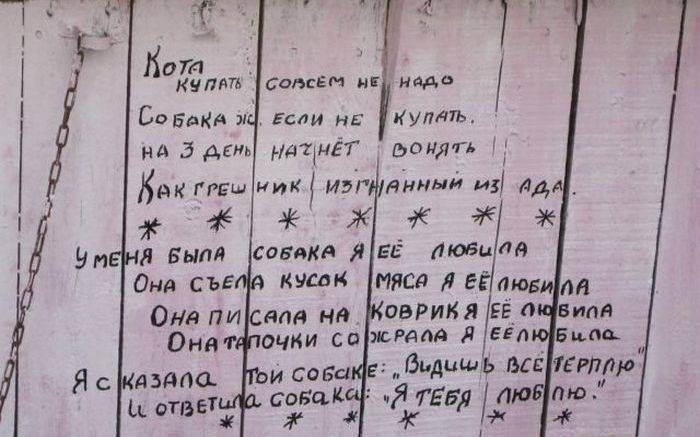 Кота
купать совсем не надо
Собака ж. если не купать.
на 3 день начнёт вонять
Как грешник изгнанный из ада.
* * * * * * *
У меня была собака я её любила
Она съела кусок мяса я её любила
Она писала на коврик я её любила
Она тапочки сожрала я её любила
Я сказала той собаке: „Видишь всё терплю"
И ответила собака: „Я тебя люблю."
* * * * *